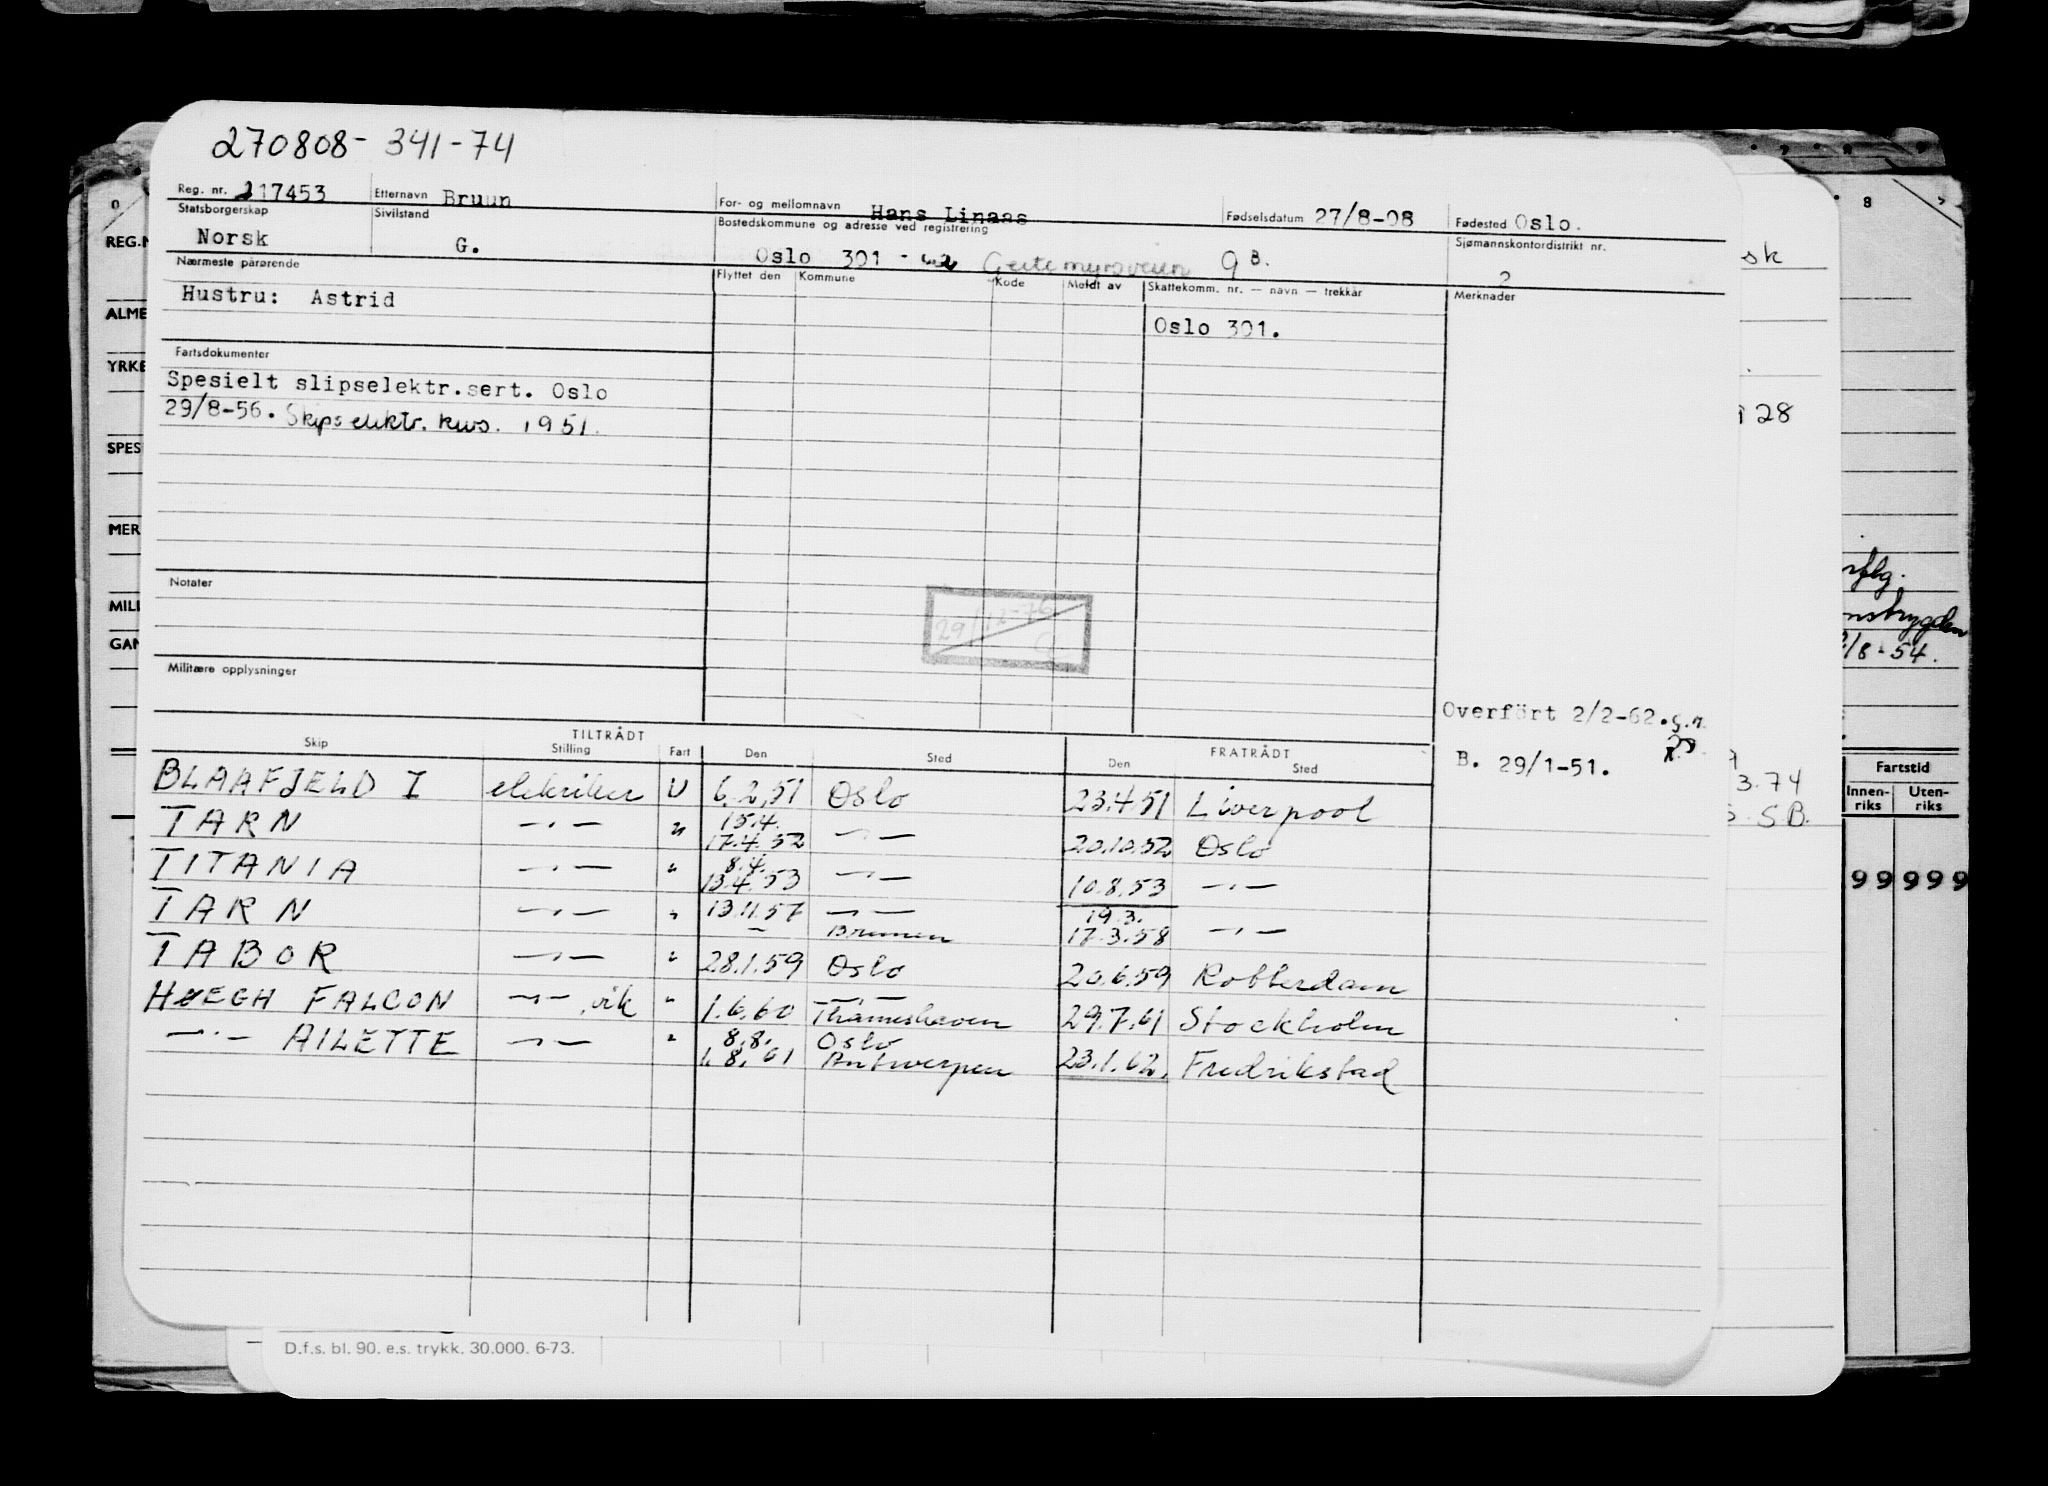 270808-341-74
Reg. nr. 217453 Etternavn Bruun For- og mellomnavn Hans Linaas Fødselsdatum 27/8-08 Fødested Oslo.
Statsborgerskap Sivilstand Bostedskommune og adresse ved registrering Sjømannskontordistrikt nr.
Norsk G. Oslo 301 - Geitemyrsveien 9B. 2
Nærmeste pårørende Flyttet den Kommune Kode Meldt av Skattekomm. nr. — navn — trekkår Merknader
Hustru: Astrid
Oslo 301.
Fartsdokumenter
Spesielt slipselektr.sert. Oslo
29/8-56. Skipselektr. kurs. 1951.
Notater
29/12-76
Militære opplysninger
Overført 2/2-62.
B. 29/1-51.
TILTRÅDT FRATRÅDT
Skip Stilling Fart Den Sted Den Sted
BLAAFJELD I elektriker U 6.2.51 Oslo 23.4.51 Liverpool
TARN —"— " 15.4. 17.4.52 —"— 20.10.52 Oslo
TITANIA —"— " 8.4. 13.4.53 —"— 10.8.53 —"—
TARN —"— " 13.11.57 —"— Bremen 19.3. 17.3.58 —"—
TABOR —"— " 28.1.59 Oslo 20.6.59 Rotterdam
HØEGH FALCON —"— vik " 1.6.60 —"— Thameshaven 29.7.61 Stockholm
—"— AILETTE —"— " 8.8. 1.8.61 Oslo Antwerpen 23.1.62. Fredrikstad
D.f.s. bl. 90. e.s. trykk. 30.000. 6-73.
REG.N
ALME
YRKE
SPES
MER
MILI
GAN
0
8
sk
28
8-54.
3.74
S.B.
Fartstid
Innen-riks Uten-riks
99 999